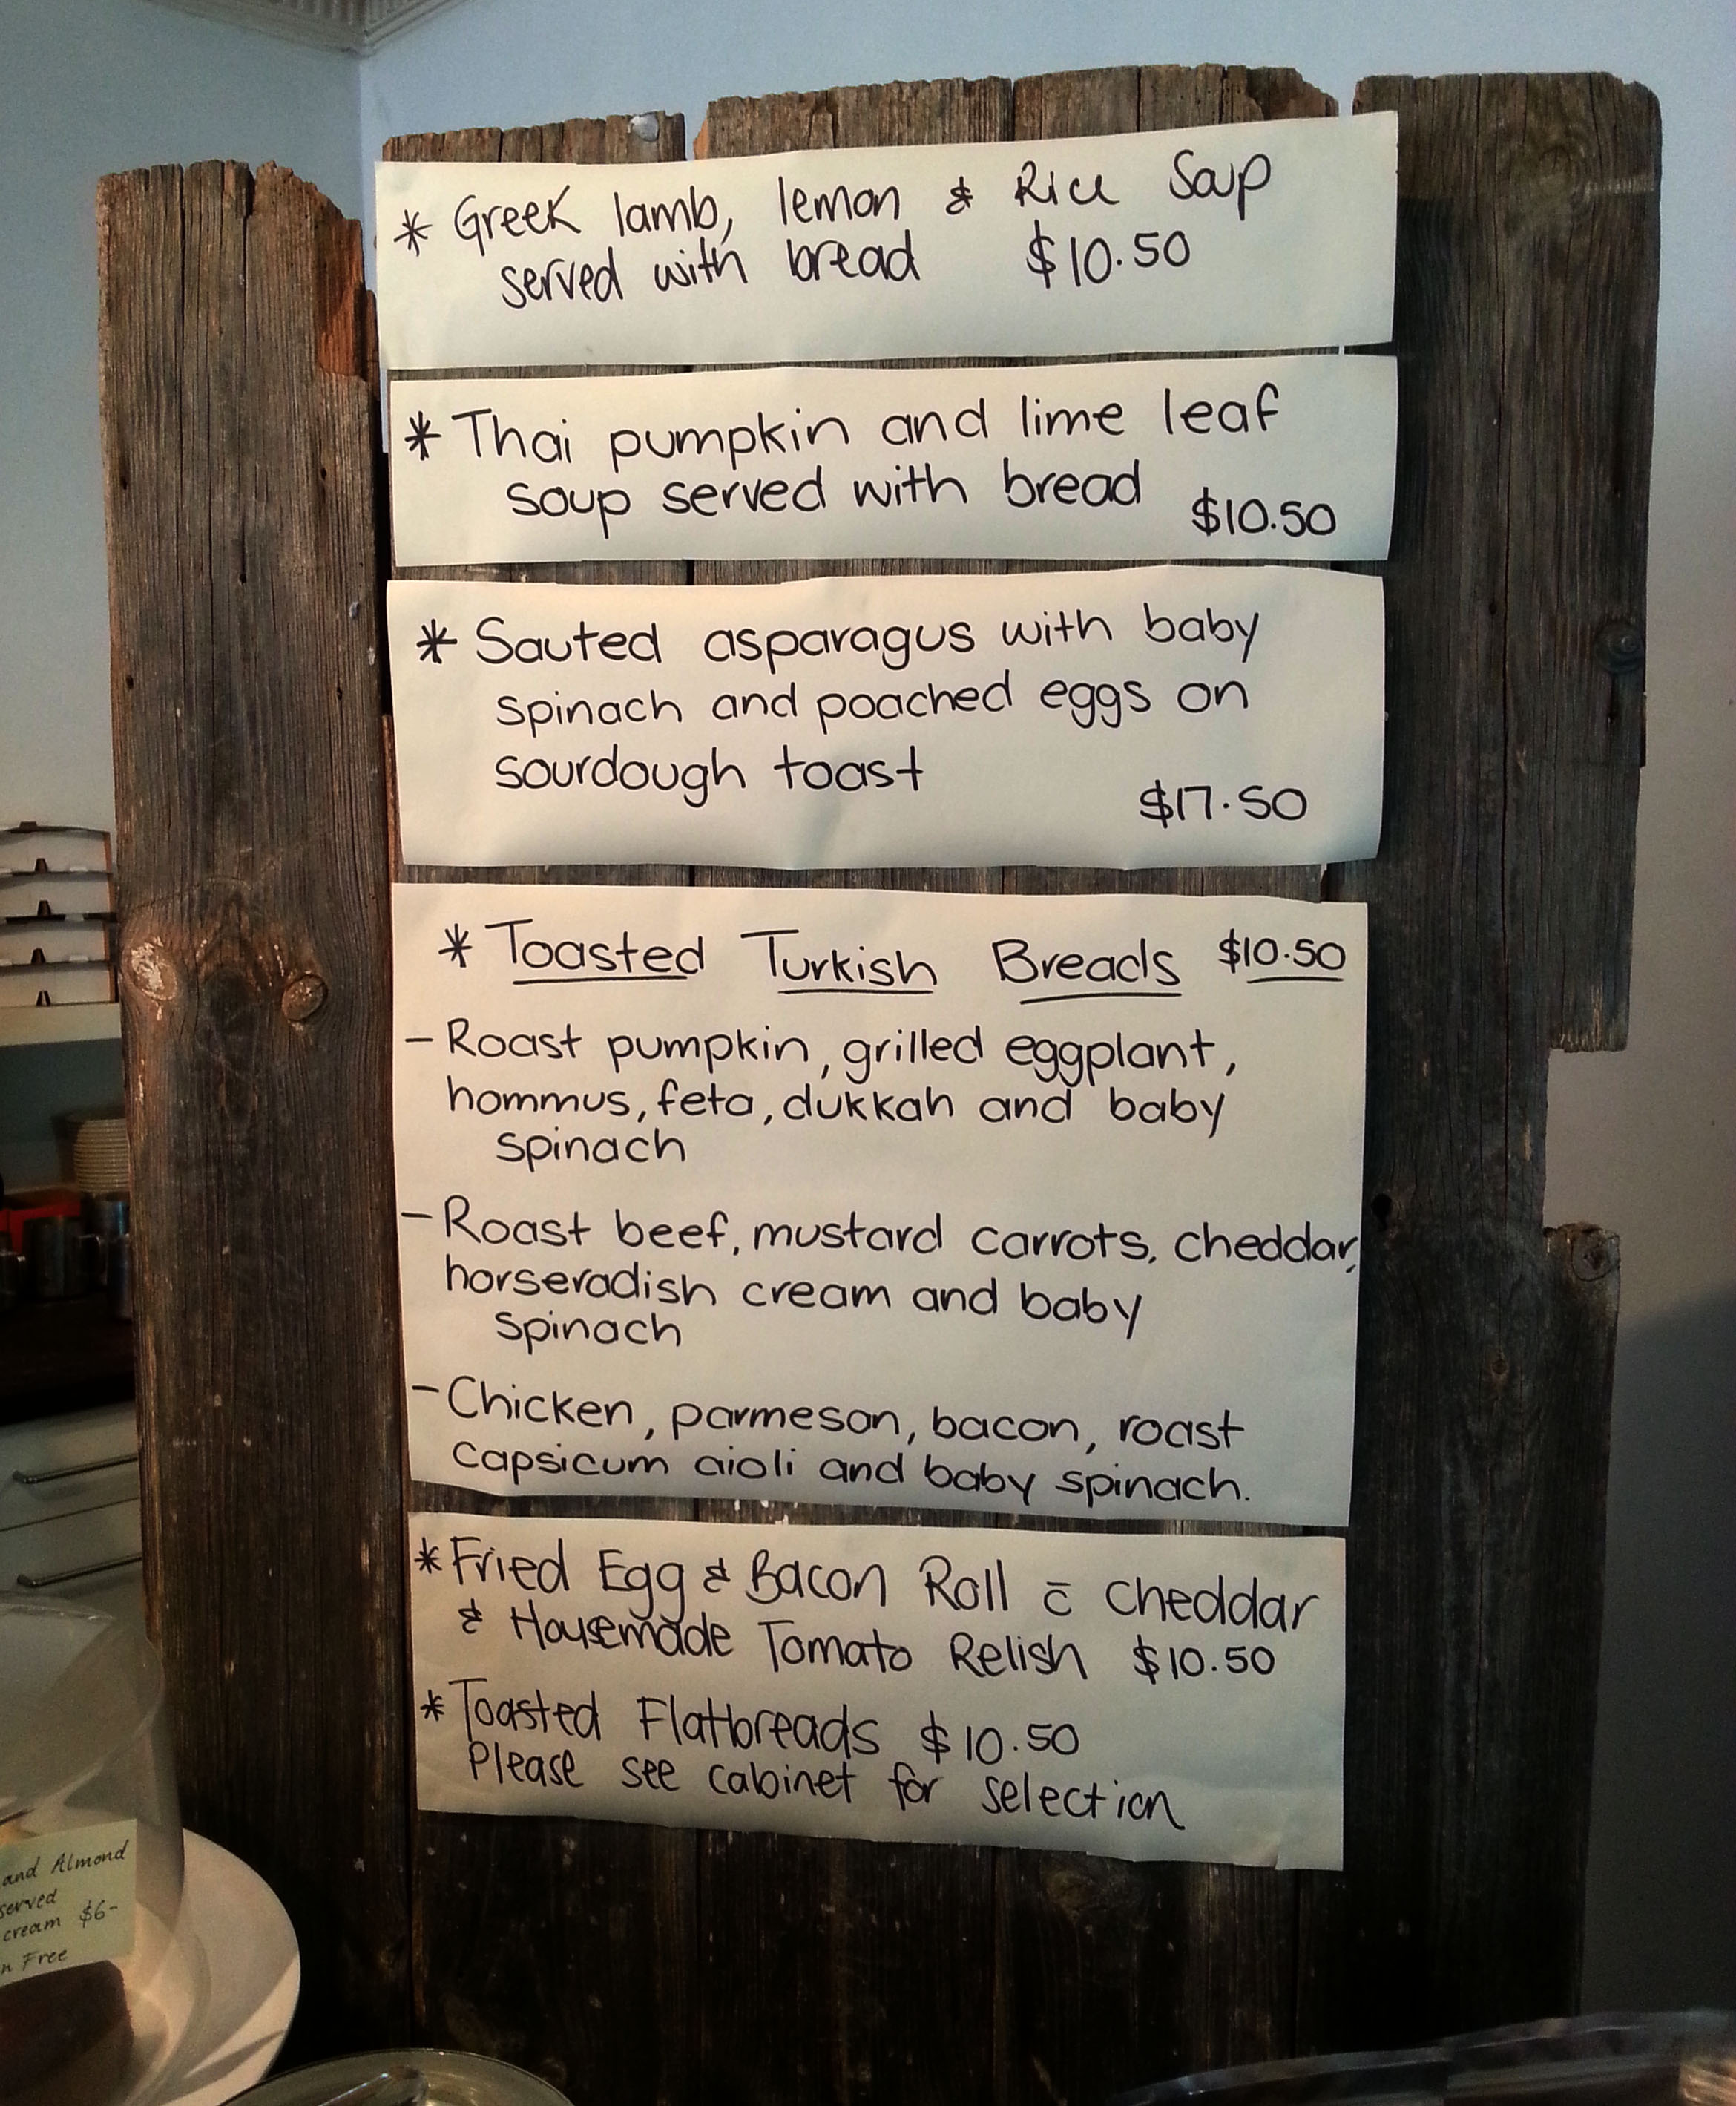 * Greek lamb, lemon & Rice Soup
served with bread $10.50
* Thai pumpkin and lime leaf
soup served with bread $10.50
* Sauted asparagus with baby
spinach and poached eggs on
sourdough toast
$17.50
* Toasted Turkish Breads $10.50
- Roast pumpkin, grilled eggplant,
hommus, feta, dukkah and baby
spinach
- Roast beef, mustard carrots, cheddar,
horseradish cream and baby
spinach
- Chicken, parmesan, bacon, roast
capsicum aioli and baby spinach.
* Fried Egg & Bacon Roll c̄ cheddar
& Housemade Tomato Relish $10.50
* Toasted Flatbreads $10.50
Please see cabinet for selection
and Almond
served
cream $6-
n Free